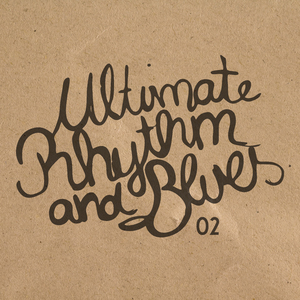 Ultimate
Rhythm
and Blues
02